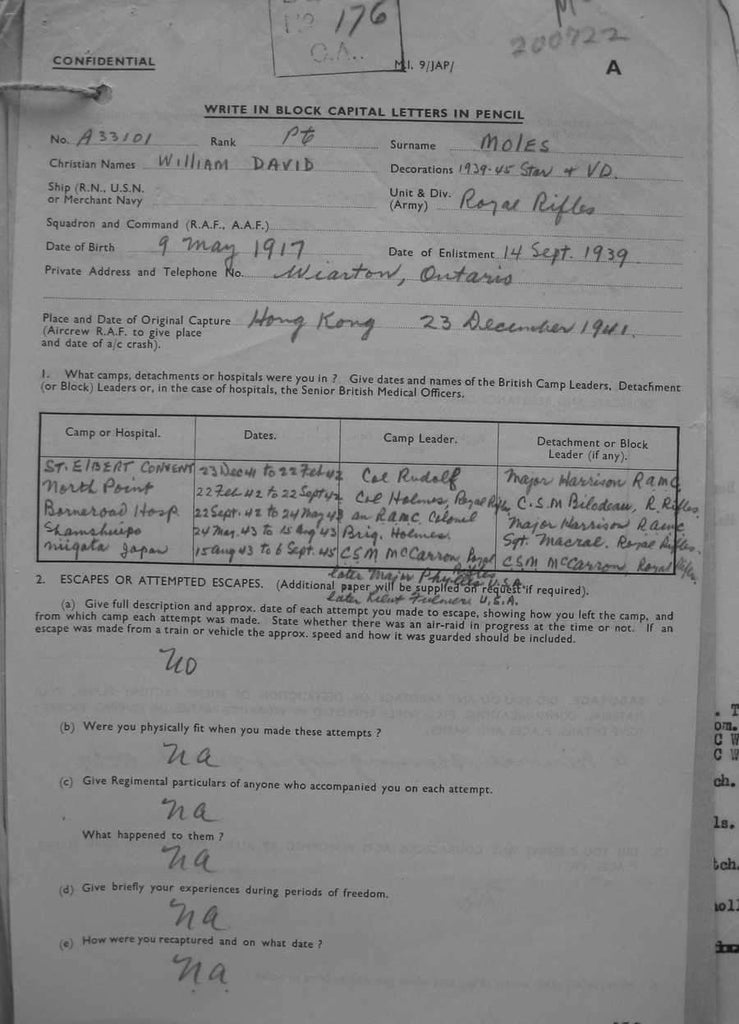 176
O.A.
200722
CONFIDENTIAL
M.I. 9/JAP/
A
WRITE IN BLOCK CAPITAL LETTERS IN PENCIL
No. A33101 Rank Pt Surname MOLES
Christian Names WILLIAM DAVID Decorations 1939-45 Star + VD.
Ship (R.N., U.S.N. or Merchant Navy Unit & Div. (Army) Royal Rifles
Squadron and Command (R.A.F., A.A.F.)
Date of Birth 9 May 1917 Date of Enlistment 14 Sept. 1939
Private Address and Telephone No. Wiarton, Ontario
Place and Date of Original Capture Hong Kong 23 December 1941.
(Aircrew R.A.F. to give place
and date of a/c crash).
1. What camps, detachments or hospitals were you in ? Give dates and names of the British Camp Leaders, Detachment
(or Block) Leaders or, in the case of hospitals, the Senior British Medical Officers.
Camp or Hospital. Dates. Camp Leader. Detachment or Block Leader (if any).
ST. ElBERT CONVENT 23 Dec 41 to 22 Feb 42 Col Rudolf Major Harrison RAMC
North Point 22 Feb 42 to 22 Sept 42 Col Holmes, Royal Rifles C.S.M Bilodeau, R. Rifles.
Borneroad Hosp. 22 Sept. 42 to 24 May 43 an RAMC Colonel Major Harrison RAMC
Shamshuipo 24 May. 43 to 15 Aug 43 Brig. Holmes. Sgt. Macral. Royal Rifles.
Niigata Japan 15 Aug 43 to 6 Sept. 45 CSM McCarron, Royal Rifles CSM McCarron, Royal Rifles
later Major U.S.A.
2. ESCAPES OR ATTEMPTED ESCAPES. (Additional paper will be supplied on request if required).
later U.S.A.
(a) Give full description and approx. date of each attempt you made to escape, showing how you left the camp, and
from which camp each attempt was made. State whether there was an air-raid in progress at the time or not. If an
escape was made from a train or vehicle the approx. speed and how it was guarded should be included.
NO
(b) Were you physically fit when you made these attempts ?
na
(c) Give Regimental particulars of anyone who accompanied you on each attempt.
na
What happened to them ?
na
(d) Give briefly your experiences during periods of freedom.
na
(e) How were you recaptured and on what date ?
na